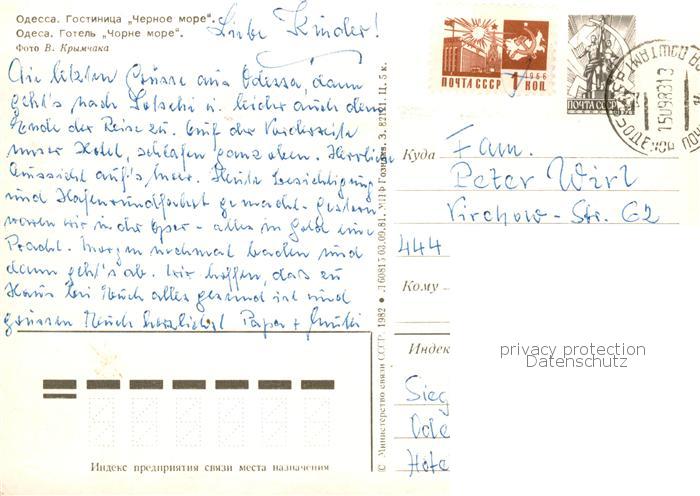 Одесса. Гостиница „Черное море“.
Одеса. Готель „Чорне море“.
Фото В. Крымчака
Liebe Kinder!
Die letzten Grüsse aus Odessa, dann
geht's nach Sotschi u. leider auch dem
Ende der Reise zu. Auf der Vorderseite
unser Hotel, schlafen ganz oben. Herrliche
Aussicht auf's Meer. Heute Besichtigung
und Hafenrundfahrt gemacht. Gestern
waren wir in der Oper - alles in Gold eine
Pracht. Morgen nochmal baden und
dann geht's ab. Wir hoffen, daß zu
Haus bei Euch alles gesund ist und
grüssen Euch herzlichst Papa +
Индекс предприятия связи места назначения
© Министерство связи СССР. 1982 ● Л 60815 03.09.81. МПФ Гознака. З. 82121. Ц. 5 к.
ПОЧТА СССР 1966
1 КОП.
ПОЧТА СССР
Куда
Fam.
Peter Wirl
Virchow-Str. 62
444
Кому
Индекс
Sieg
Ode
Hote
privacy protection
Datenschutz